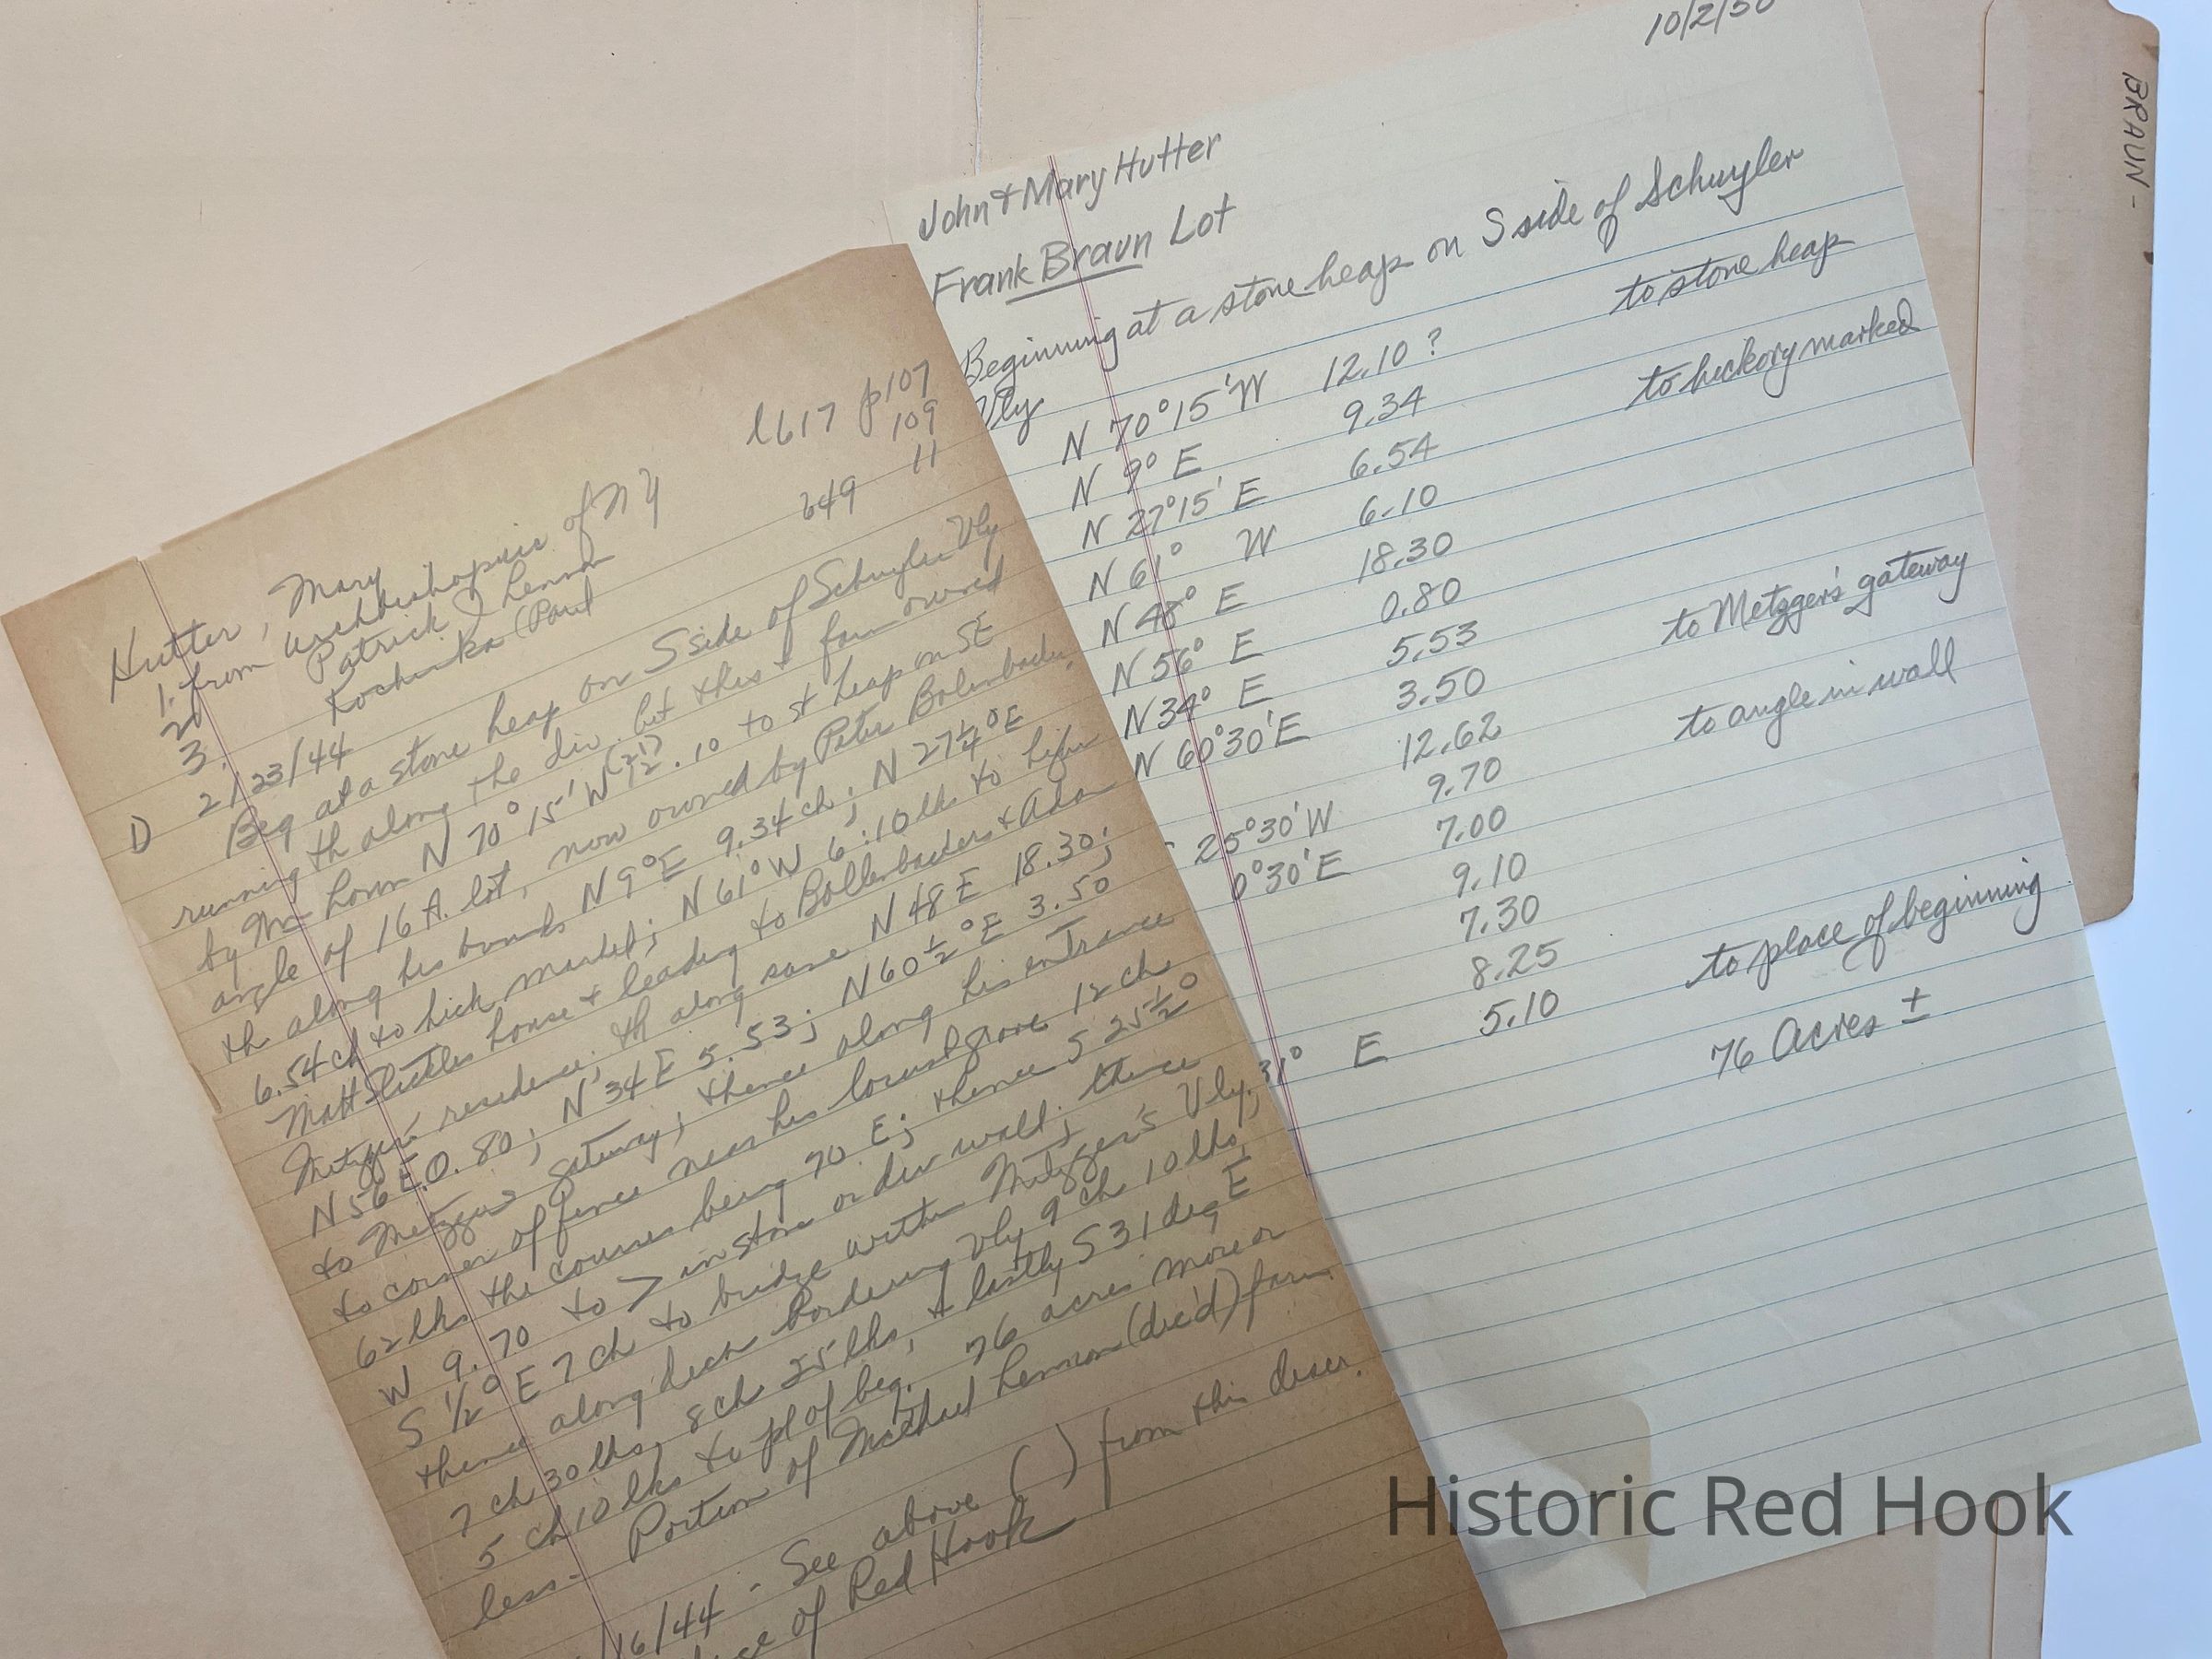 BRAUN -
10/2/50
John & Mary Hutter
Frank Braun Lot
Beginning at a stone heap on S side of Schuyler
Vly
N 70°15'W 12.10 ? to stone heap
N 9° E 9.34
N 27°15' E 6.54 to hickory marked
N 61° W 6.10
N 48° E 18.30
N 56° E 0.80
N 34° E 5.53
N 60°30'E 3.50 to Metzger's gateway
12.62
25°30'W 9.70 to angle in wall
0°30'E 7.00
9.10
7.30
8.25
31° E 5.10 to place of beginning
76 Acres ±
l617 p107
109
649 11
Hutter, Mary
1. from Archbishopric of NY
2. Patrick J Lennon
3. Kochinka (Paul
D 2/23/44
Beg at a stone heap on S side of Schuyler Vly
running th along the div. bet this & farm owned
by Mc Lown N 70°15'W (21?) 12.10 to st heap on SE
angle of 16 A. lot, now owned by Peter Bolenbacker,
th along his bounds N 9°E 9.34 ch; N 27 1/4°E
6.54 ch to hick. marked; N 61°W 6:10 lks to
Matt house & leading to Bollenbackers & Adam
Metzgers residence; th along same N 48 E 18.30;
N 56 E 0.80; N 34 E 5.53; N 60 1/2°E 3.50
to Metzgers gateway; thence along his entrance
to corner of fence near his locust grove 12 ch
62 lks the courses being 70 E; thence S 25 1/2°
W 9.70 to > in stone or div wall; thence
S 1/2°E 7 ch to bridge within Metzger's Vly;
thence along ditch bordering Vly 9 ch 10 lks;
7 ch 30 lks; 8 ch 25 lks, & lastly S 31 deg E
5 ch 10 lks to pl of beg. 76 acres more or
less. Portion of Michael Lennon (dec'd) farm.
16/44 - See above ( ) from this descr.
of Red Hook
Historic Red Hook